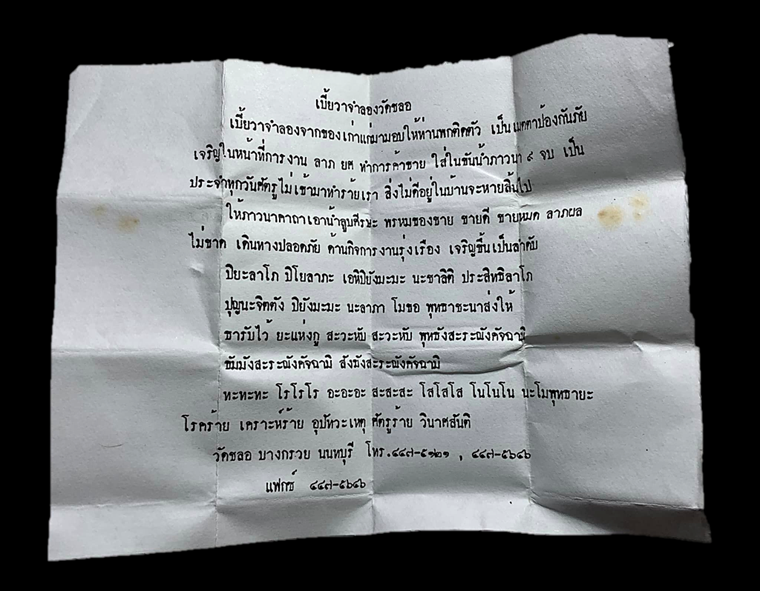 เบี้ยวาจำลองวัดชลอ
เบี้ยวาจำลองจากของเก่าแก่มามอบให้ท่านพกติดตัว เป็นเมตตาป้องกันภัย
เจริญในหน้าที่การงาน ลาภ ยศ ทำการค้าขาย ใส่ในขันน้ำภาวนา ๙ จบ เป็น
ประจำทุกวันศัตรูไม่เข้ามาทำร้ายเรา สิ่งไม่ดีอยู่ในบ้านจะหายสิ้นไป
ให้ภาวนาคาถาเอาน้ำลูบศีรษะ พรหมของขาย ขายดี ขายหมด ลาภผล
ไม่ขาด เดินทางปลอดภัย ด้านกิจการงานรุ่งเรือง เจริญขึ้นเป็นลำดับ
ปิยะลาโภ ปิโยลาภะ เอหิปิยังมะมะ นะชาลิติ ประสิทธิลาโภ
ปุญนะจิตตัง ปิยังมะมะ นะลาภา โมขอ พุทธาชะนาส่งให้
ธารับไว้ ยะแห่งกู สะวะหับ สะวะหับ พุทธังสะระณังคัจฉามิ
ธัมมังสะระณังคัจฉามิ สังฆังสะระณังคัจฉามิ
หะหะหะ โรโรโร อะอะอะ สะสะสะ โสโสโส โนโนโน นะโมพุทธายะ
โรคร้าย เคราะห์ร้าย อุปัทวะเหตุ ศัตรูร้าย วินาศสันติ
วัดชลอ บางกรวย นนทบุรี โทร.๔๔๗-๕๑๒๑ , ๔๔๗-๕๖๔๖
แฟกซ์ ๔๔๗-๕๖๔๖